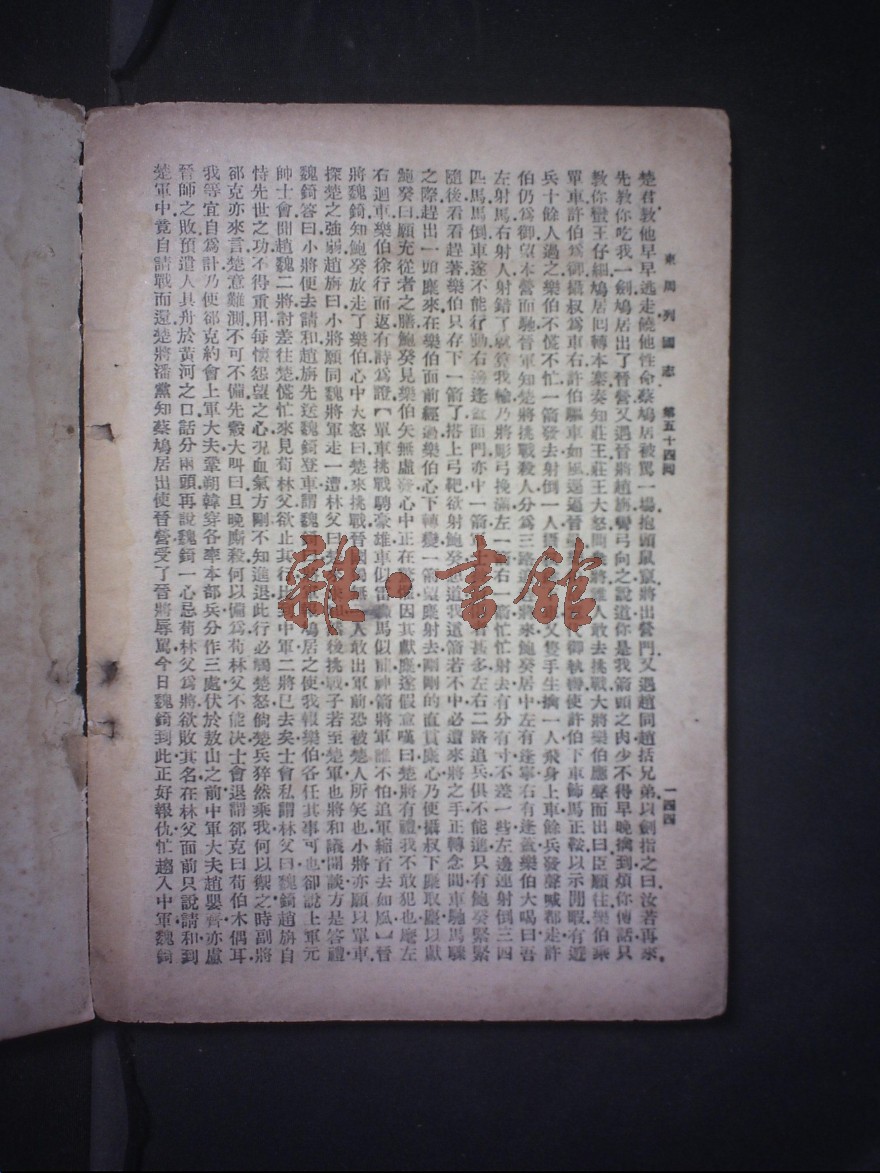 東周列國志 第五十四回 一四四
楚君教他早早逃走饒他性命蔡鳩居被罵一場抱頭鼠竄將出營門又遇趙同趙括兄弟以劍指之曰汝若再來
先教你吃我一劍鳩居出了晉營又遇晉將趙旃彎弓向之說道你是我箭頭之肉少不得早晚擒到煩你傳話只
教你蠻王仔細鳩居回轉本寨奏知莊王莊王大怒問眾將誰人敢去挑戰大將樂伯應聲而出曰臣願往樂伯乘
單車許伯為御攝叔為車右許伯驅車如風逕逼晉 御執轡使許伯下車飾馬正鞍以示閒暇有遊
兵十餘人過之樂伯不慌不忙一箭發去射倒一人攝 又隻手生擒一人飛身上車餘兵發聲喊都走許
伯仍為御望本營而馳晉軍知楚將挑戰殺人分為三路 將來鮑癸居中左有逢寧右有逢蓋樂伯大喝曰吾
左射馬右射人射錯了就算我輸乃將彫弓挽滿左一箭右一箭忙忙射去有分有寸不差一些左邊連射倒三四
匹馬馬倒車遂不能行動右邊逢蓋面門亦中一箭軍士 者甚多左右二路追兵俱不能進只有鮑癸緊緊
隨後看看趕著樂伯只存下一箭了搭上弓靶欲射鮑癸想道我這箭若不中必遭來將之手正轉念間車馳馬驟
之際趕出一頭麋來在樂伯面前經過樂伯心下轉變一箭望麋射去剛剛的直貫麋心乃使攝叔下車取麋以獻
鮑癸曰願充從者之膳鮑癸見樂伯矢無虛發心中正在驚 因其獻麋遂假意嘆曰楚將有禮我不敢犯也麾左
右迴車樂伯徐行而返有詩為證【單車挑戰騁豪雄車似雷 馬似龍神箭將軍誰不怕追軍縮首去如風】晉
將魏錡知鮑癸放走了樂伯心中大怒曰楚來挑戰晉國獨無一人敢出軍前恐被楚人所笑也小將亦願以單車
探楚之強弱趙旃曰小將願同魏將軍走一遭林父曰楚 然後挑戰子若至楚軍也將和議開談方是答禮
魏錡答曰小將便去請和趙旃先送魏錡登車謂魏錡 鳩居之使我報樂伯各任其事可也卻說上軍元
帥士會聞趙魏二將討差往楚慌忙來見荀林父欲止其行比到中軍二將已去矣士會私謂林父曰魏錡趙旃自
恃先世之功不得重用每懷怨望之心況血氣方剛不知進退此行必觸楚怒倘楚兵猝然乘我何以禦之時副將
郤克亦來言楚意難測不可不備先縠大叫曰旦晚廝殺何以備為荀林父不能決士會退謂郤克曰荀伯木偶耳
我等宜自為計乃使郤克約會上軍大夫鞏朔韓穿各率本部兵分作三處伏於敖山之前中軍大夫趙嬰齊亦慮
晉師之敗預遣人具舟於黃河之口話分兩頭再說魏錡一心忌荀林父為將欲敗其名在林父面前只說請和到
楚軍中竟自請戰而還楚將潘黨知蔡鳩居出使晉營受了晉將辱罵今日魏錡到此正好報仇忙趨入中軍魏錡
雜·書館